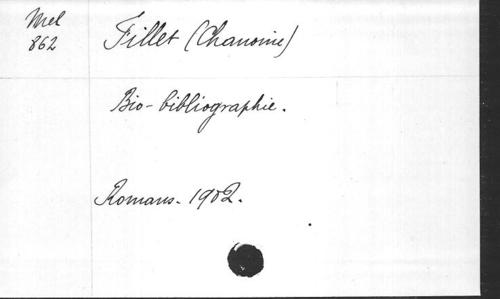 Mel
862
Fillet (Chanoine)
Bio-bibliographie.
Romans. 1902.